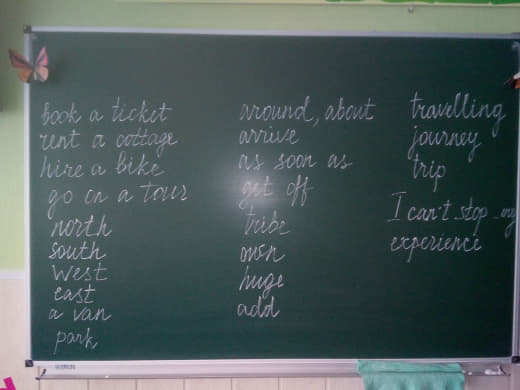 book a ticket
rent a cottage
hire a bike
go on a tour
north
south
west
east
a van
park
around, about
arrive
as soon as
get off
tribe
own
huge
add
travelling
journey
trip
I can't stop
experience